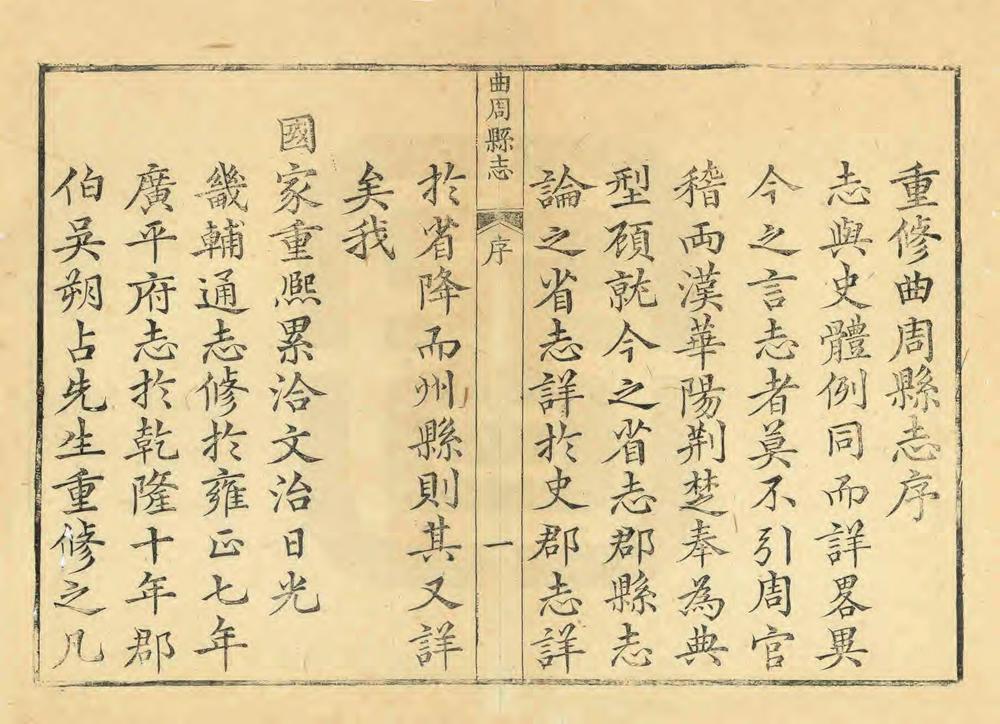 重修曲周縣志序
志與史體例同而詳畧異
今之言志者莫不引周官
稽兩漢華陽荆楚奉為典
型頋就今之省志郡縣志
論之省志詳於史郡志詳
曲周縣志
序
一
於省降而州縣則其又詳
矣我
國家重熈累洽文治日光
畿輔通志修於雍正七年
廣平府志於乾隆十年郡
伯吳朔占先生重修之凡